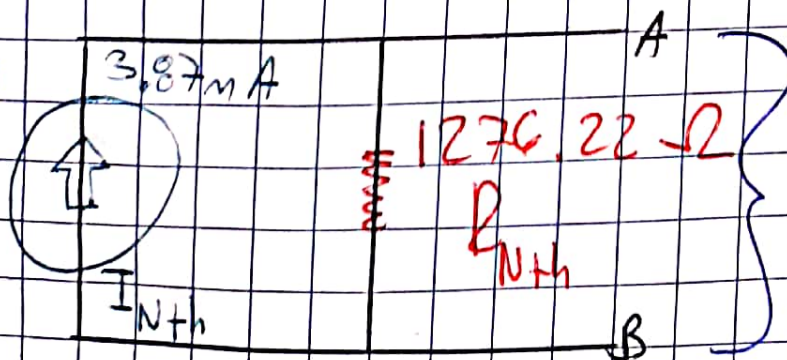 A
3.87mA
1276.22 Ω
R_Nth
I_Nth
B